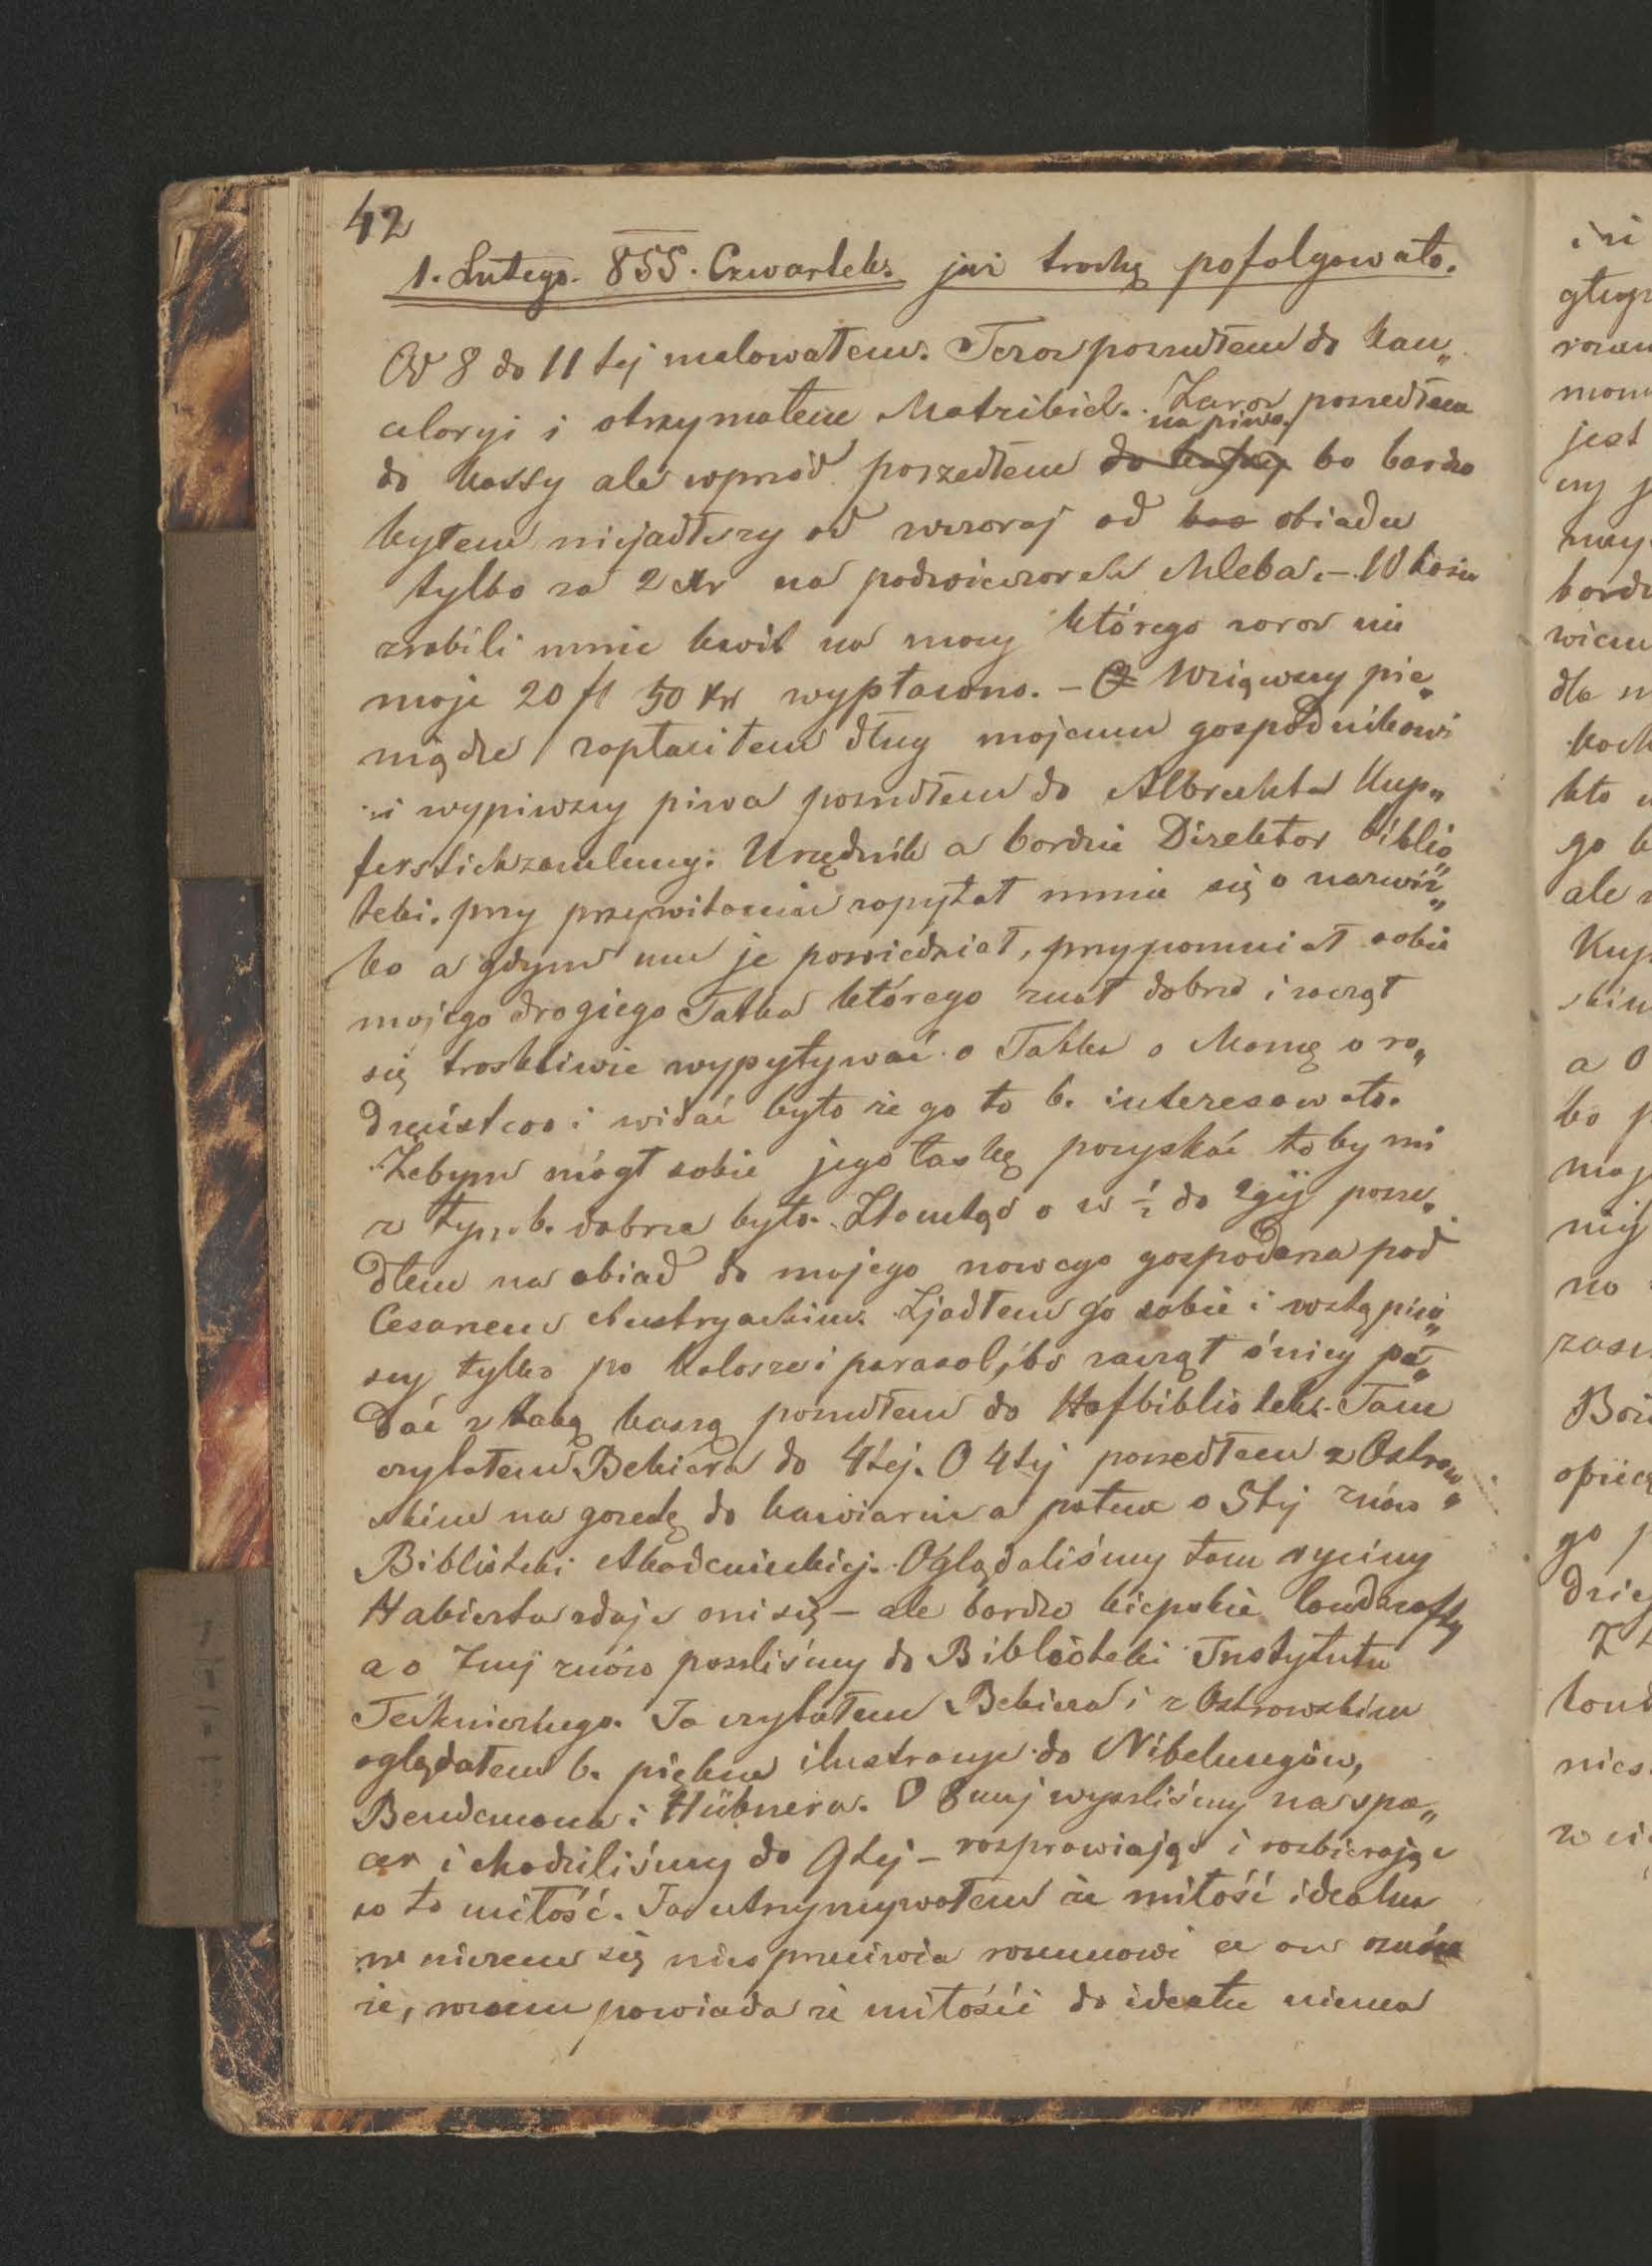 42
1. Lutego. 855. Czwartek. już trochę pofolgowało.
Od 8 do 11tej malowałem. Teraz poszedłem do kan„
celaryi i otrzymałem Matrikel. Zaraz poszedłem
na piwo
do kassy ale wprzód poszedłem do kassy bo bardzo
byłem niejadłszy od wczoraj od obiadu
tylko za 2 xr na podwieczorek chleba. – W kasie
zrobili mnie kwit na mocy którego zaraz mi
moje 20 fl 50 xr wypłacono. – Wziąwszy pie„
niądze zapłaciłem długi mojemu gospodnikowi
i wypiwszy piwa poszedłem do Albrechta Kup„
ferstichzamlung. Urzędnik a bardzié Direktor biblio„
teki. przy przywitaniu zapytał mnie się o nazwis„
ko a gdym mu je powiedział, przypomniał sobie
mojego drogiego Tatka którego znał dobrze i zaczął
się troskliwie wypytywać o Tatka o Mamę o ro„
dzeństwo i widać było że go to b. interesowało.
Żebym mógł sobie jego łaskę pozyskać toby mi
z tym b. dobrze było. Ztamtąd o w ½ do 2gij posze„
dłem na obiad do mojego nowego gospodarza pod
Cesarzem Austryackim. Zjadłem go sobie i wstąpiw„
szy tylko po kalosze i parasol, bo zaczął śnieg pa„
dać z taką kaszą poszedłem do Hofbiblioteki. Tam
czytałem Bekiera do 4tej. O 4tij poszedłem z Ostrow„
skim na gazetę do kawiarni a potem o 5tij znów
Biblioteki Akademickiej. Oglądaliśmy tam ryciny
Habierta zdaje oni się – ale bardzo kiepskie landszafty
a o 7mij znów poszliśmy do Biblioteki Instytutu
Technicznego. Ja czytałem Bekiera i z Ostrowskim
oglądałem b. piękne ilustracye do Nibelungów,
Bendemana i Hübnera. O 8mij wyszliśmy na spa„
cer i chodziliśmy do 9tej – rozprawiając i rozbierając
co to miłość. Ja utrzymywałem że miłość idealna
w niczem się niesprzeciwia rozumowi a on
że, rozum powiada że miłości do ideału niema